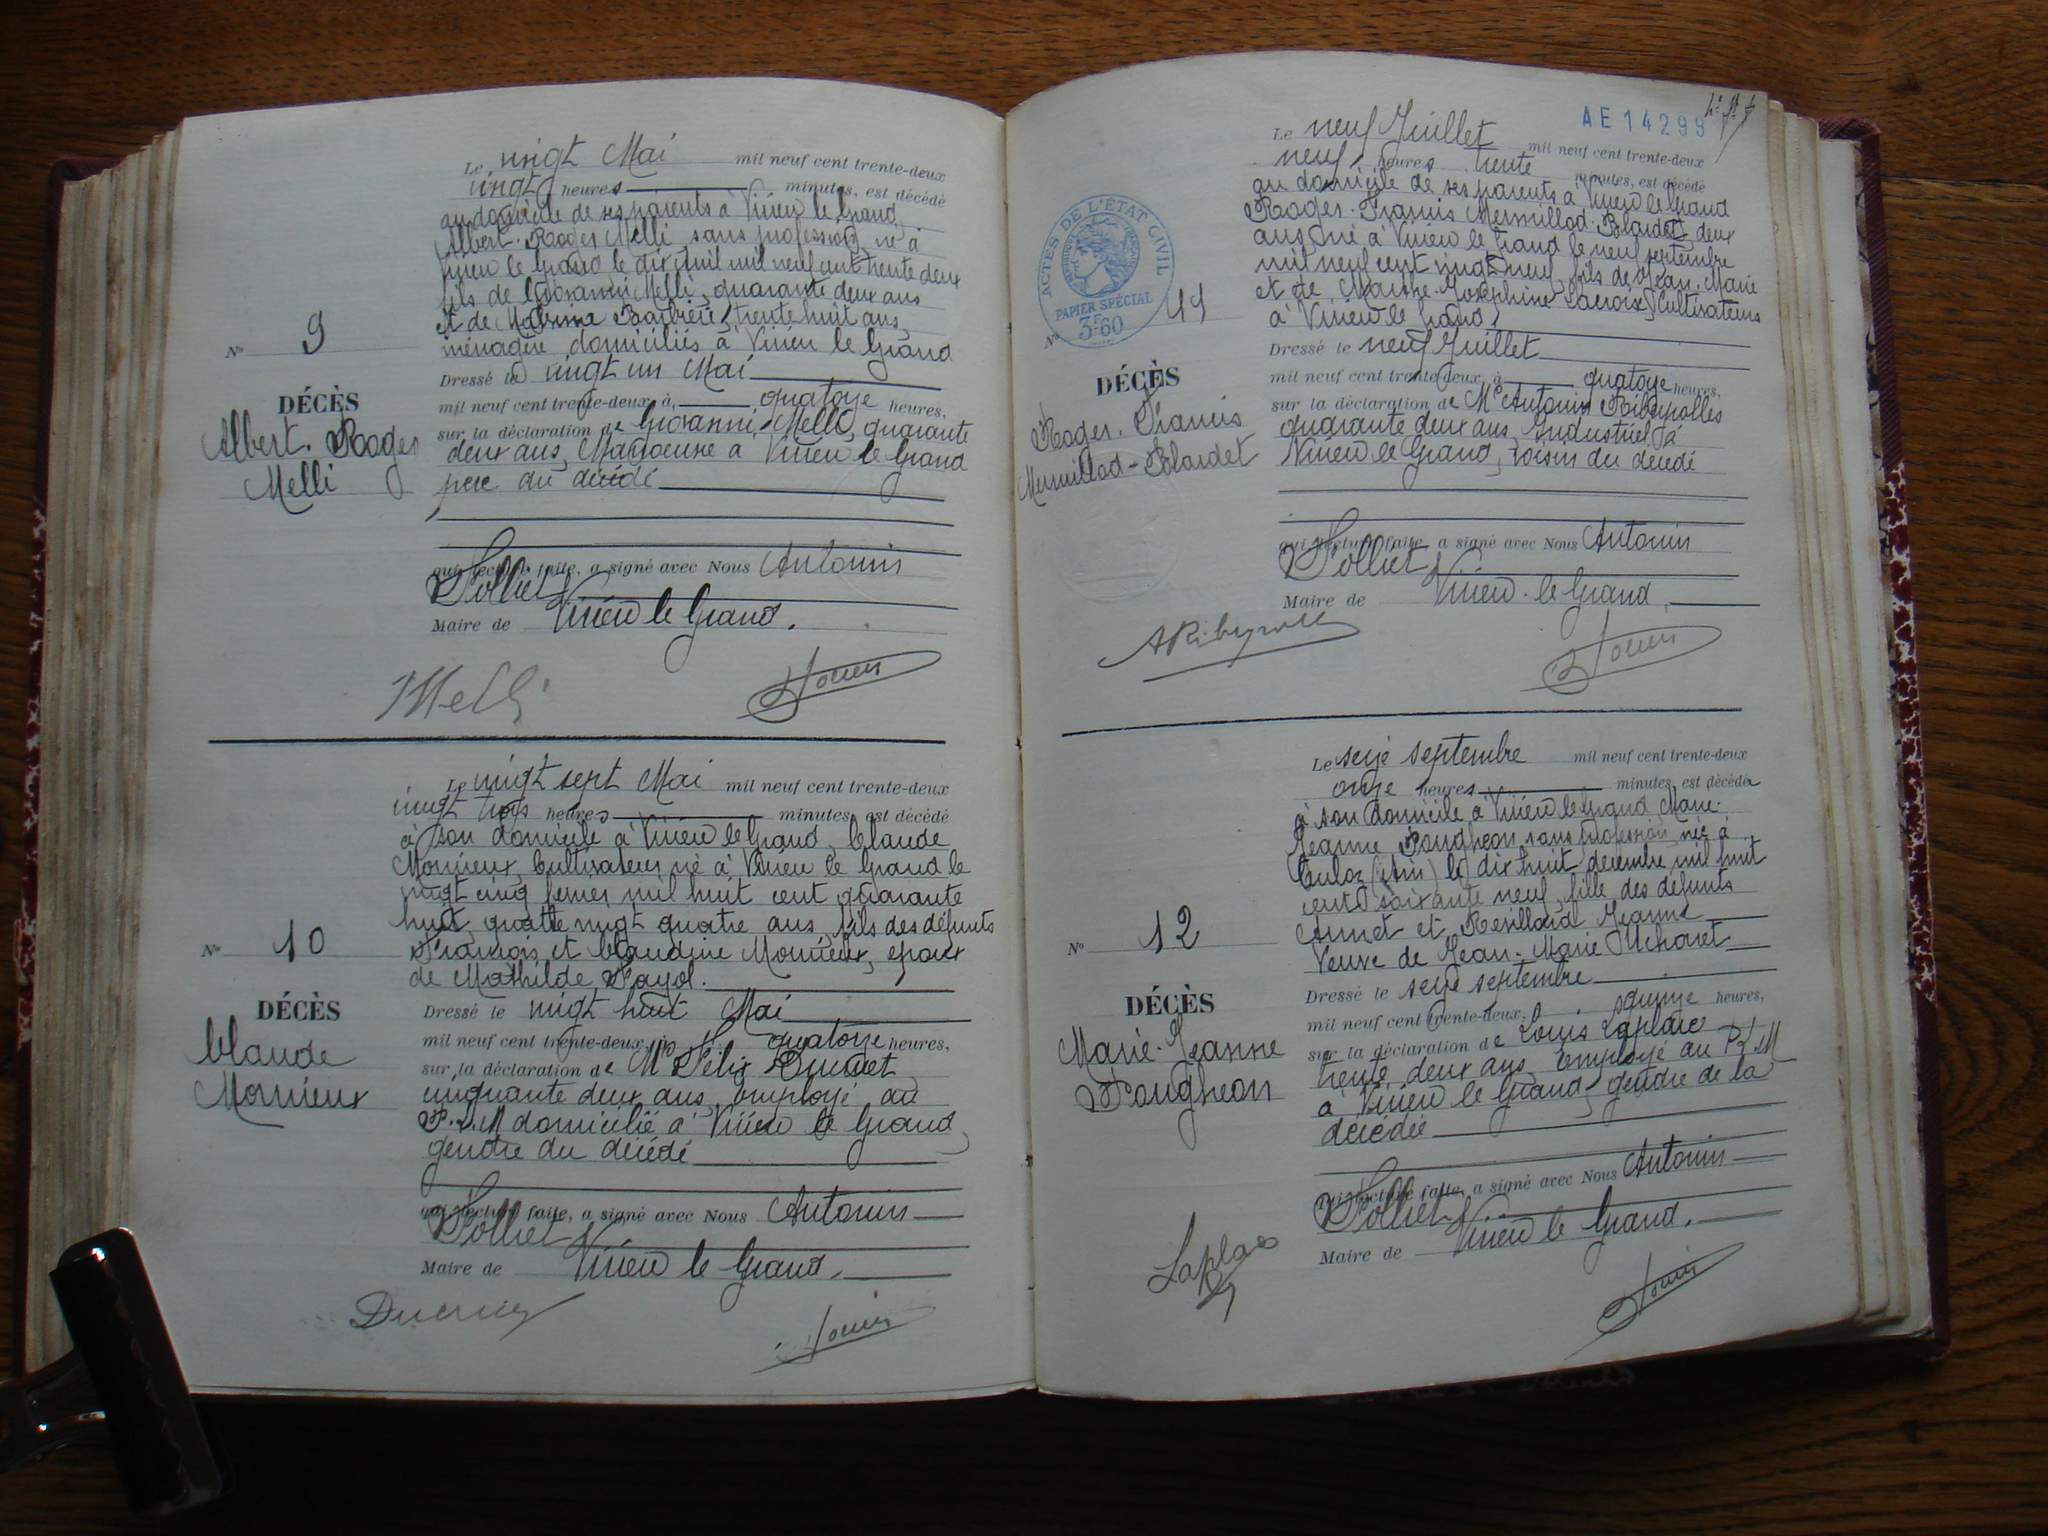 Le vingt Mai mil neuf cent trente-deux
vingt heures minutes, est décédé
au domicile de ses parents à Virieu le Grand,
Albert. Roger Melli, sans profession, né à
Virieu le Grand le dix Avril mil neuf cent trente deux
fils de Giovanni Melli, quarante deux ans
et de Barbieri, trente huit ans,
ménagère domiciliés à Virieu le Grand
Dressé le vingt un Mai
mil neuf cent trente-deux à quatorze heures,
sur la déclaration de Giovanni Melli, quarante
deux ans, Manoeuvre à Virieu le Grand
père du décédé
qui, lecture faite, a signé avec Nous Antonin
Solliet
Maire de Virieu le Grand.
N° 9
DÉCÈS
Albert. Roger
Melli
Melli
Le vingt sept Mai mil neuf cent trente-deux
vingt trois heures minutes, est décédé
à son domicile à Virieu le Grand, Claude
Monnieux, Cultivateur né à Virieu le Grand le
vingt cinq fevrier mil huit cent quarante
huit, quatre vingt quatre ans, fils des défunts
François et Claudine Monnieux, époux
de Mathilde Payol.
Dressé le vingt huit Mai
mil neuf cent trente-deux, à quatorze heures,
sur la déclaration de Mr Félix
cinquante deux ans, Employé au
P.L.M domicilié à Virieu le Grand,
gendre du décédé
qui, lecture faite, a signé avec Nous Antonin
Solliet
Maire de Virieu le Grand.
N° 10
DÉCÈS
Claude
Monnieux
AE 14299
Le neuf Juillet mil neuf cent trente-deux
neuf heures trente minutes, est décédé
au domicile de ses parents à Virieu le Grand
Roger. Francis Mermillod-Blardet, deux
ans, né à Virieu le Grand le neuf septembre
mil neuf cent vingt neuf, fils de Jean. Marie
et de Marie. Joséphine Cultivateurs
à Virieu le Grand,
Dressé le neuf Juillet
mil neuf cent trente-deux, à quatorze heures,
sur la déclaration de Mr Antonin Ribeyrolles
quarante deux ans, Industriel à
Virieu le Grand, voisin du décédé
qui, lecture faite, a signé avec Nous Antonin
Solliet
Maire de Virieu. le Grand.
ACTES DE L'ÉTAT CIVIL
PAPIER SPÉCIAL
3F60
N° 11
DÉCÈS
Roger. Francis
Mermillod-Blardet
Le seize septembre mil neuf cent trente-deux
onze heures minutes, est décédée
à son domicile à Virieu le Grand, Marie.
Jeanne Pongheon, sans profession, née à
Culoz (Ain) le dix huit decembre mil huit
cent soixante neuf, fille des défunts
Annet et Revillard Jeanne
Veuve de Jean. Marie
Dressé le seize septembre
mil neuf cent trente-deux, à quinze heures,
sur la déclaration de Louis Laplace
trente deux ans Employé au P.L.M
à Virieu le Grand, gendre de la
décédée
qui, lecture faite, a signé avec Nous Antonin
Solliet
Maire de Virieu le Grand.
N° 12
DÉCÈS
Marie. Jeanne
Pongheon
Laplace